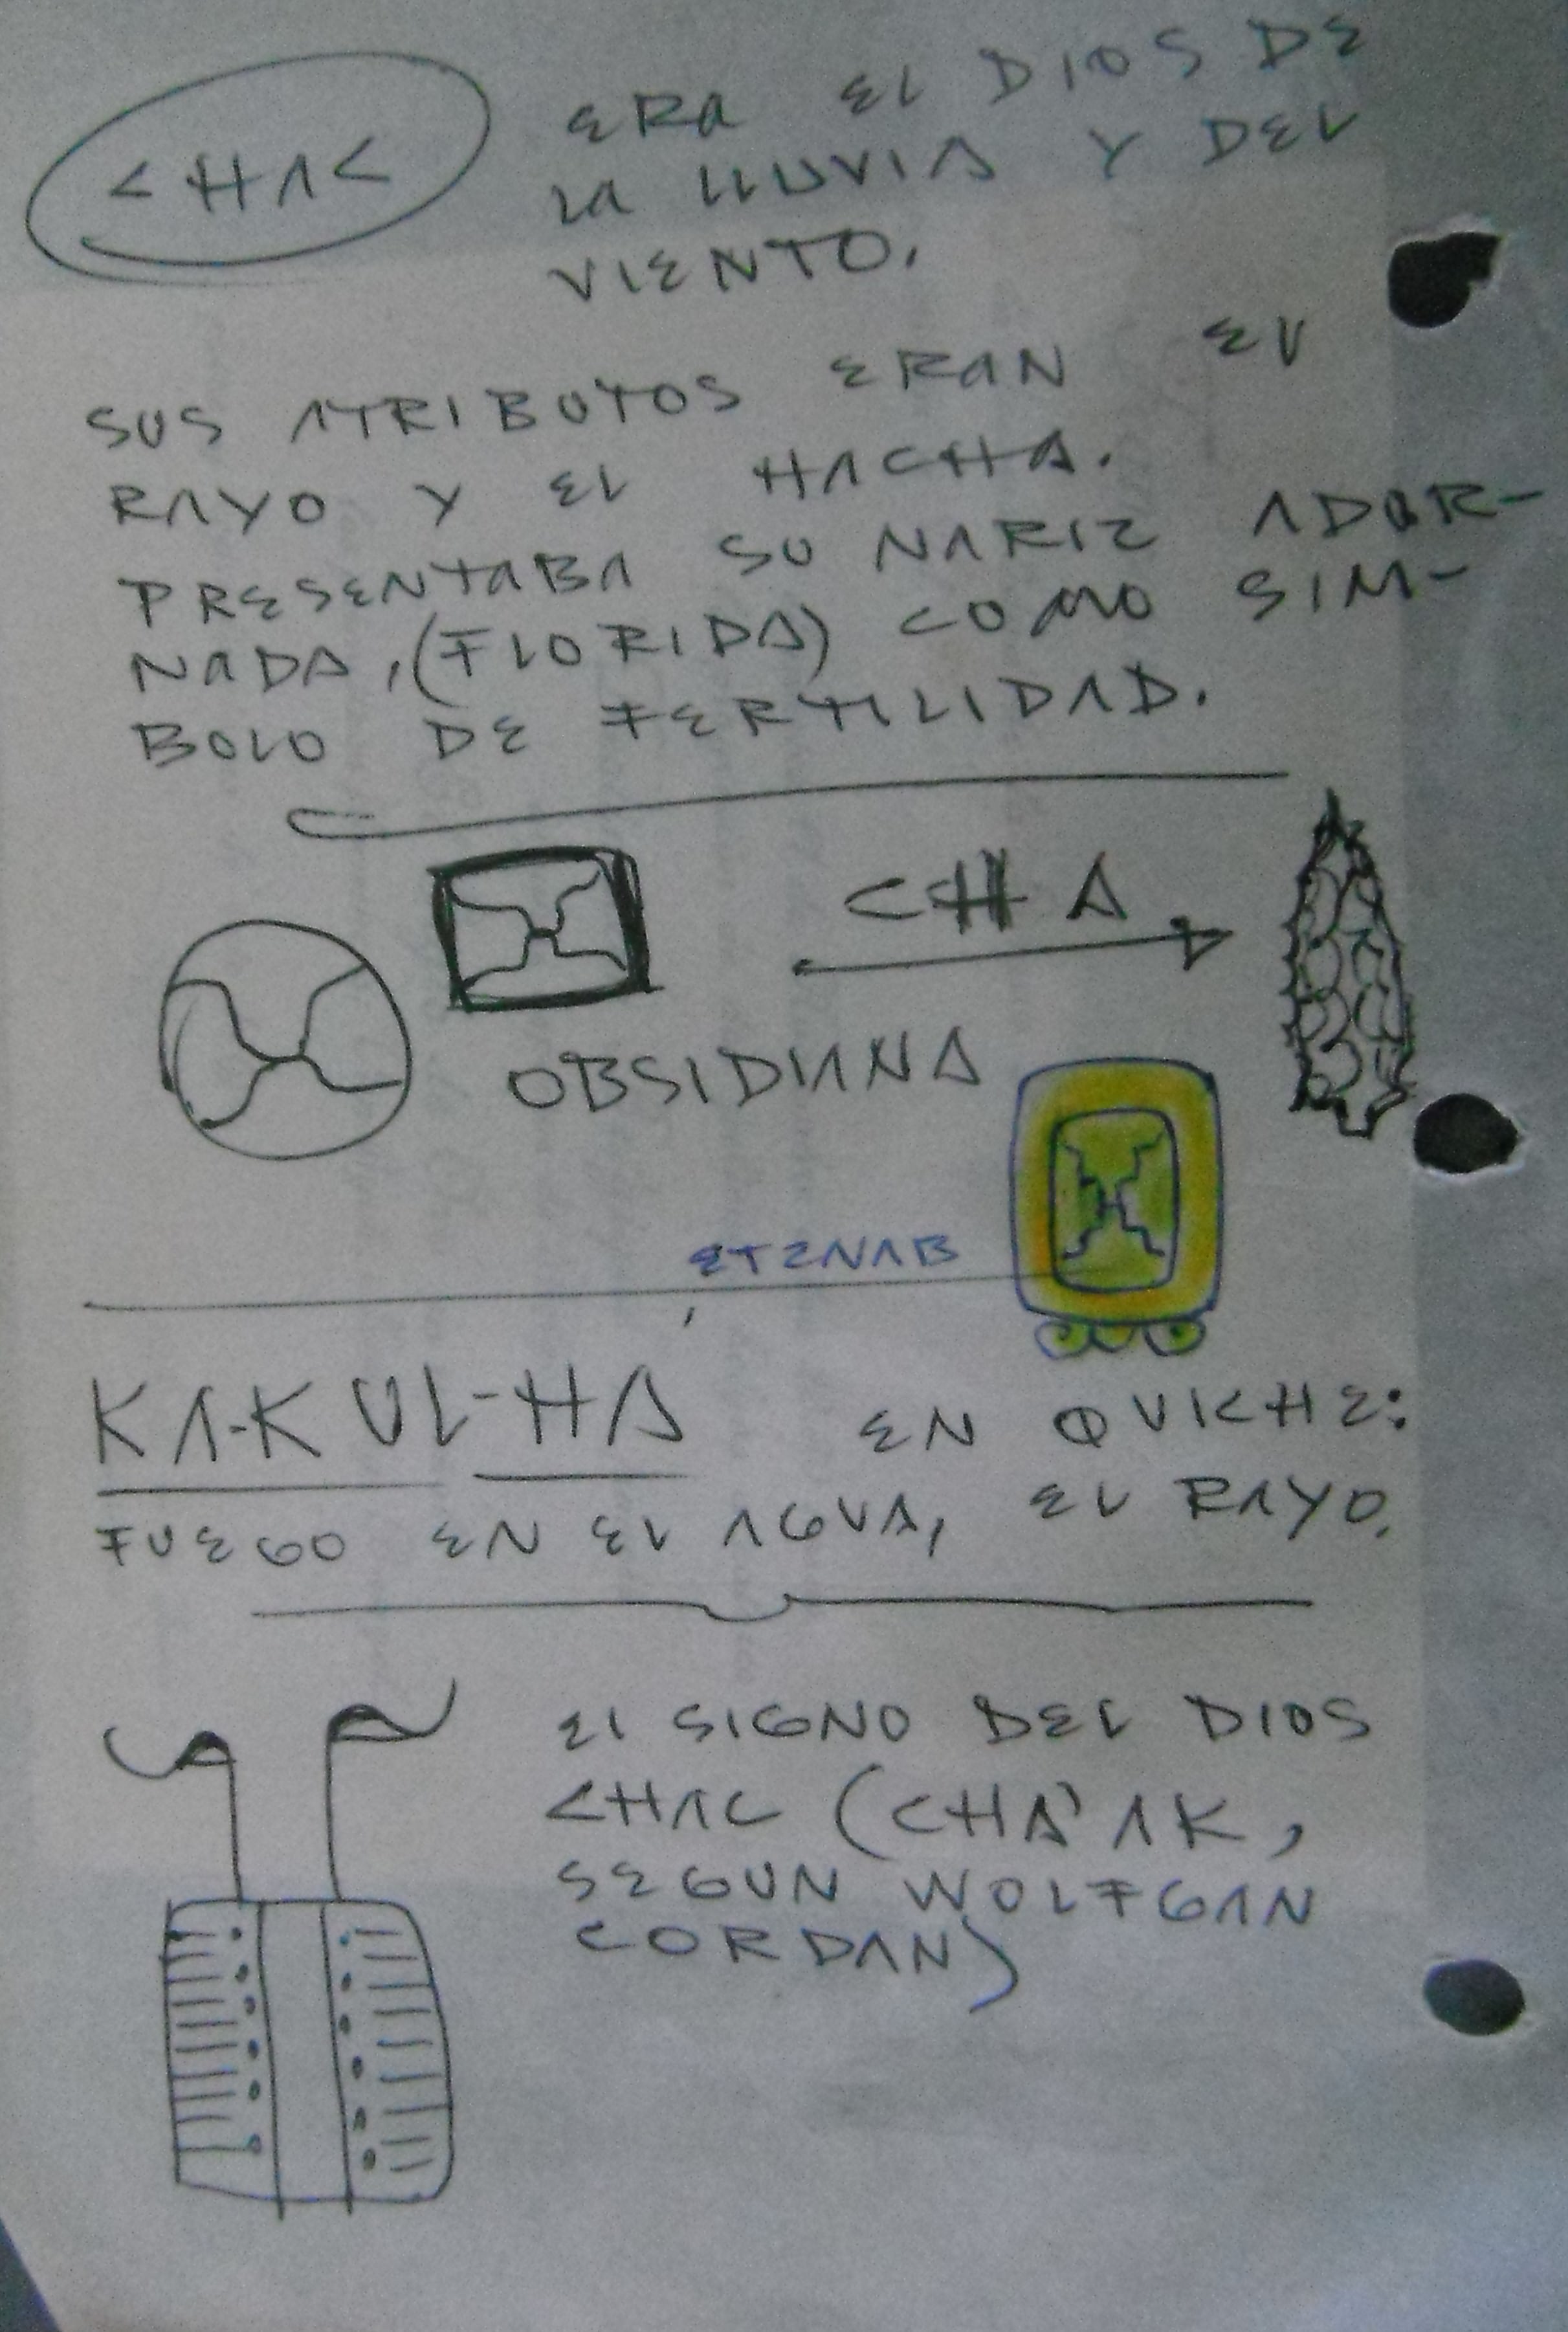 CHAC
ERA EL DIOS DE
LA LLUVIA Y DEL
VIENTO.
SUS ATRIBUTOS ERAN EL
RAYO Y EL HACHA.
PRESENTABA SU NARIZ ADOR-
NADA, (FLORIDA) COMO SIM-
BOLO DE FERTILIDAD.
CHA
OBSIDIANA
ETZNAB
KA-KUL-HA EN QUICHE:
FUEGO EN EL AGUA, EL RAYO.
EL SIGNO DEL DIOS
CHAC (CHA'AK,
SEGUN WOLFGAN
CORDAN)